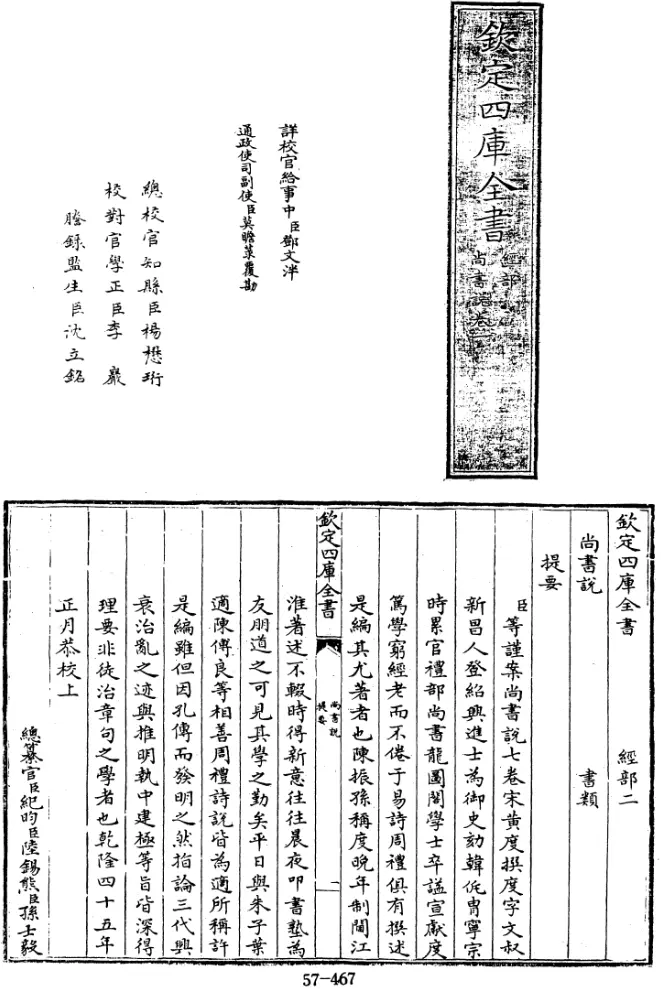 欽定四庫全書
經部
尚書說卷一
詳校官給事中臣鄧文泮
通政使司副使臣莫瞻菉覆勘
總校官知縣臣楊懋珩
校對官學正臣李巖
謄錄監生臣沈立銘
欽定四庫全書 經部二
尚書說 書類
提要
臣等謹案尚書說七卷宋黃度撰度字文叔
新昌人登紹興進士為御史劾韓侂胄寧宗
時累官禮部尚書龍圖閣學士卒諡宣獻度
篤學窮經老而不倦于易詩周禮俱有撰述
是編其尤著者也陳振孫稱度晚年制閫江
欽定四庫全書
尚書說
提要
一
淮著述不輟時得新意往往晨夜叩書塾為
友朋道之可見其學之勤矣平日與朱子葉
適陳傅良等相善周禮詩說皆為適所稱許
是編雖但因孔傳而發明之然指論三代興
衰治亂之迹與推明執中建極等旨皆深得
理要非徒治章句之學者也乾隆四十五年
正月恭校上
總纂官臣紀昀臣陸錫熊臣孫士毅
57-467